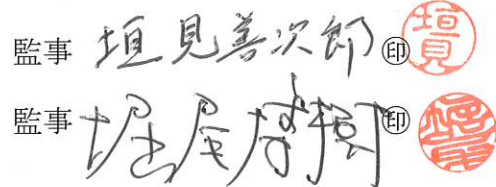 監事 垣見善次郎 ㊞ 垣見
監事 堀尾 ㊞